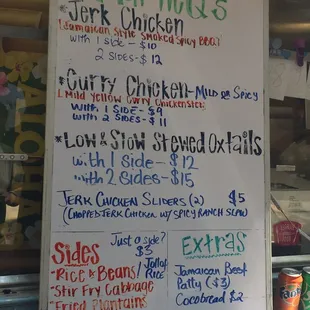 *Jerk Chicken
(Jamaican Style Smoked Spicy BBQ)
with 1 side - $10
2 sides - $12
*Curry Chicken - Mild or Spicy
(Mild Yellow Curry Chicken
with 1 side - $9
with 2 sides - $11
*Low & Slow Stewed Oxtails
with 1 side - $12
with 2 sides - $15
Jerk Chicken Sliders (2) $5
(Chopped Jerk Chicken w/ Spicy Ranch Slaw)
Sides
Just a side?
$3
-Rice & Beans/Jollof Rice
-Stir Fry Cabbage
-Fried Plantains
Extras
Jamaican Beef
Patty ($3)
Cocobread $2
ALOHA
Fanta